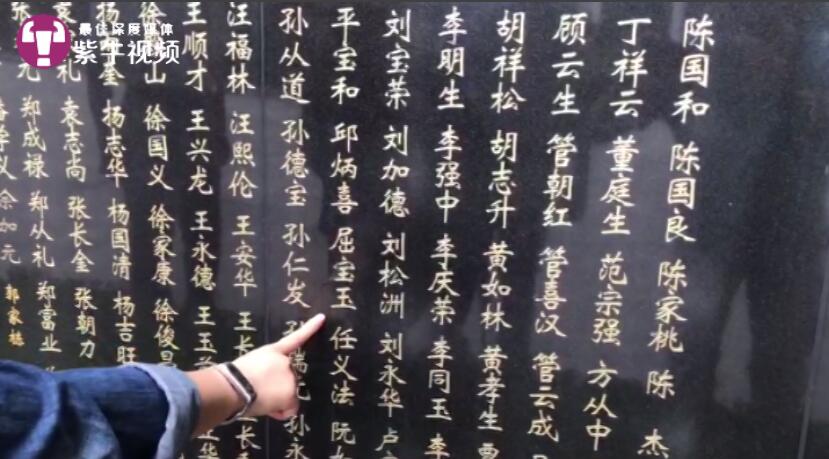 最佳深度媒体
紫牛视频
陈国和 陈国良 陈家桃 陈 杰
丁祥云 董庭生 范宗强 方从中
顾云生 管朝红 管喜汉 管云成
胡祥松 胡志升 黄如林 黄孝生
李明生 李强中 李庆荣 李同玉 李
刘宝荣 刘加德 刘松洲 刘永华
平宝和 邱炳喜 屈宝玉 任义法 阮
孙从道 孙德宝 孙仁发 孙瑞 孙永
汪福林 汪熙伦 王安华 王长
王顺才 王兴龙 王永德 王玉
徐 山 徐国义 徐家康 徐俊
杨 奎 杨志华 杨国清 杨吉旺
袁 礼 袁志尚 张长金 张朝力
张 元 郑成禄 郑从礼 郑富业
义 余加元 郭家栋